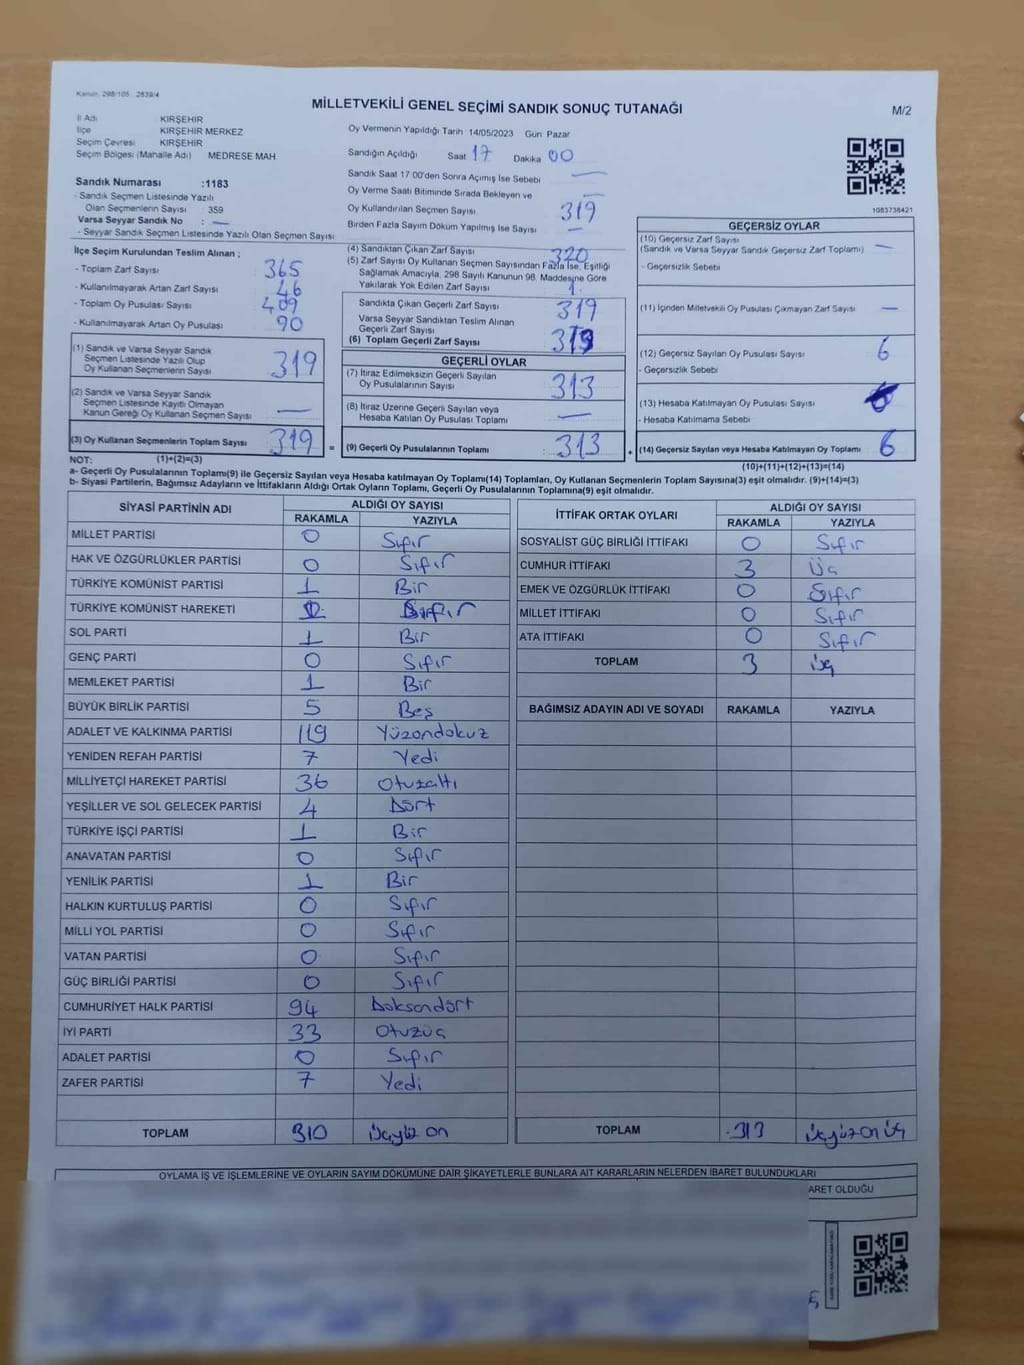 Kanun: 298/105 2839/4
MİLLETVEKİLİ GENEL SEÇİMİ SANDIK SONUÇ TUTANAĞI
M/2
İl Adı KIRŞEHİR
İlçe KIRŞEHİR MERKEZ
Seçim Çevresi KIRŞEHİR
Seçim Bölgesi (Mahalle Adı) MEDRESE MAH.
Sandık Numarası :1183
- Sandık Seçmen Listesinde Yazılı
Olan Seçmenlerin Sayısı 359
Varsa Seyyar Sandık No : —
- Seyyar Sandık Seçmen Listesinde Yazılı Olan Seçmen Sayısı
İlçe Seçim Kurulundan Teslim Alınan ;
- Toplam Zarf Sayısı 365
- Kullanılmayarak Artan Zarf Sayısı 46
- Toplam Oy Pusulası Sayısı 409
- Kullanılmayarak Artan Oy Pusulası 90
(1) Sandık ve Varsa Seyyar Sandık
Seçmen Listesinde Yazılı Olup
Oy Kullanan Seçmenlerin Sayısı 319
(2) Sandık ve Varsa Seyyar Sandık
Seçmen Listesinde Kayıtlı Olmayan
Kanun Gereği Oy Kullanan Seçmen Sayısı —
(3) Oy Kullanan Seçmenlerin Toplam Sayısı 319 =
Oy Vermenin Yapıldığı Tarih 14/05/2023 Gün Pazar
Sandığın Açıldığı Saat 17 Dakika 00
Sandık Saat 17 00'den Sonra Açılmış İse Sebebi —
Oy Verme Saati Bitiminde Sırada Bekleyen ve —
Oy Kullandırılan Seçmen Sayısı 319
Birden Fazla Sayım Döküm Yapılmış İse Sayısı —
(4) Sandıktan Çıkan Zarf Sayısı 320
(5) Zarf Sayısı Oy Kullanan Seçmen Sayısından Fazla İse, Eşitliği
Sağlamak Amacıyla, 298 Sayılı Kanunun 98. Maddesine Göre
Yakılarak Yok Edilen Zarf Sayısı 1
Sandıkta Çıkan Geçerli Zarf Sayısı 319
Varsa Seyyar Sandıktan Teslim Alınan
Geçerli Zarf Sayısı
(6) Toplam Geçerli Zarf Sayısı 319
GEÇERLİ OYLAR
(7) İtiraz Edilmeksizin Geçerli Sayılan
Oy Pusulalarının Sayısı 313
(8) İtiraz Üzerine Geçerli Sayılan veya
Hesaba Katılan Oy Pusulası Toplamı —
(9) Geçerli Oy Pusulalarının Toplamı 313 +
1083738421
GEÇERSİZ OYLAR
(10) Geçersiz Zarf Sayısı
(Sandık ve Varsa Seyyar Sandık Geçersiz Zarf Toplamı) —
- Geçersizlik Sebebi
(11) İçinden Milletvekili Oy Pusulası Çıkmayan Zarf Sayısı —
(12) Geçersiz Sayılan Oy Pusulası Sayısı 6
- Geçersizlik Sebebi
(13) Hesaba Katılmayan Oy Pusulası Sayısı
- Hesaba Katılmama Sebebi
(14) Geçersiz Sayılan veya Hesaba Katılmayan Oy Toplamı 6
NOT: (1)+(2)=(3) (10)+(11)+(12)+(13)=(14)
a- Geçerli Oy Pusulalarının Toplamı(9) ile Geçersiz Sayılan veya Hesaba katılmayan Oy Toplamı(14) Toplamları, Oy Kullanan Seçmenlerin Toplam Sayısına(3) eşit olmalıdır. (9)+(14)=(3)
b- Siyasi Partilerin, Bağımsız Adayların ve İttifakların Aldığı Ortak Oyların Toplamı, Geçerli Oy Pusulalarının Toplamına(9) eşit olmalıdır.
SİYASİ PARTİNİN ADI ALDIĞI OY SAYISI
RAKAMLA YAZIYLA
MİLLET PARTİSİ 0 Sıfır
HAK VE ÖZGÜRLÜKLER PARTİSİ 0 Sıfır
TÜRKİYE KOMÜNİST PARTİSİ 1 Bir
TÜRKİYE KOMÜNİST HAREKETİ 0 Sıfır
SOL PARTİ 1 Bir
GENÇ PARTİ 0 Sıfır
MEMLEKET PARTİSİ 1 Bir
BÜYÜK BİRLİK PARTİSİ 5 Beş
ADALET VE KALKINMA PARTİSİ 119 Yüzondokuz
YENİDEN REFAH PARTİSİ 7 Yedi
MİLLİYETÇİ HAREKET PARTİSİ 36 Otuzaltı
YEŞİLLER VE SOL GELECEK PARTİSİ 4 Dört
TÜRKİYE İŞÇİ PARTİSİ 1 Bir
ANAVATAN PARTİSİ 0 Sıfır
YENİLİK PARTİSİ 1 Bir
HALKIN KURTULUŞ PARTİSİ 0 Sıfır
MİLLİ YOL PARTİSİ 0 Sıfır
VATAN PARTİSİ 0 Sıfır
GÜÇ BİRLİĞİ PARTİSİ 0 Sıfır
CUMHURİYET HALK PARTİSİ 94 Doksandört
İYİ PARTİ 33 Otuzüç
ADALET PARTİSİ 0 Sıfır
ZAFER PARTİSİ 7 Yedi
TOPLAM 310 Üçyüz on
İTTİFAK ORTAK OYLARI ALDIĞI OY SAYISI
RAKAMLA YAZIYLA
SOSYALİST GÜÇ BİRLİĞİ İTTİFAKI 0 Sıfır
CUMHUR İTTİFAKI 3 Üç
EMEK VE ÖZGÜRLÜK İTTİFAKI 0 Sıfır
MİLLET İTTİFAKI 0 Sıfır
ATA İTTİFAKI 0 Sıfır
TOPLAM 3 üç
BAĞIMSIZ ADAYIN ADI VE SOYADI RAKAMLA YAZIYLA
TOPLAM 313 üçyüz on üç
OYLAMA İŞ VE İŞLEMLERİNE VE OYLARIN SAYIM DÖKÜMÜNE DAİR ŞİKAYETLERLE BUNLARA AİT KARARLARIN NELERDEN İBARET BULUNDUKLARI
ARET OLDUĞU